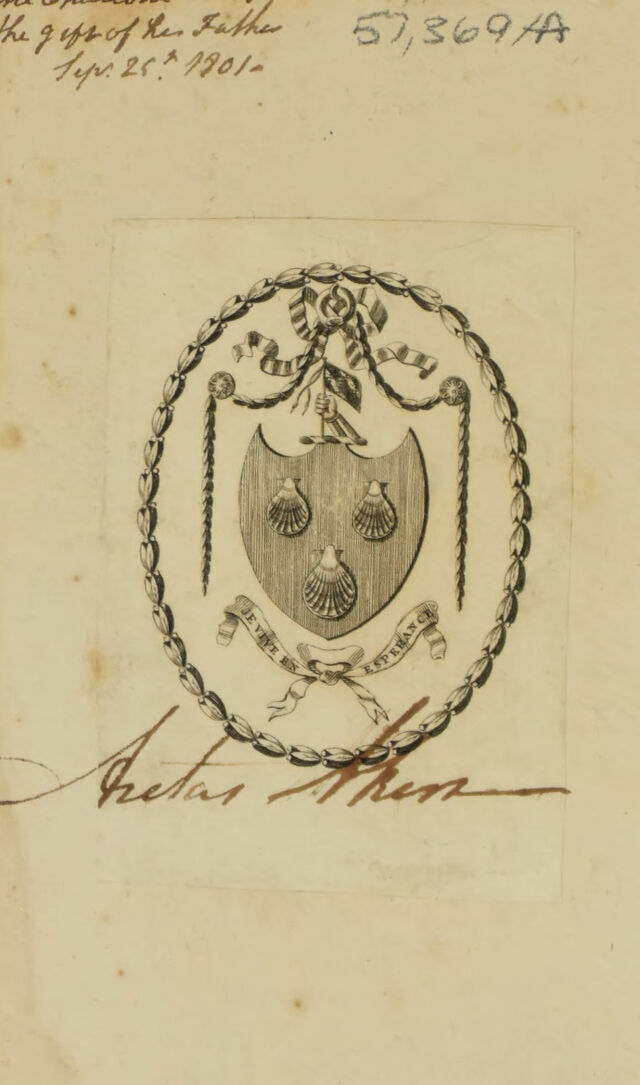 the gift of her Father
Sep. 25th. 1801-
57,369/A
JE VIVE EN ESPERANCE
Aretas Akers